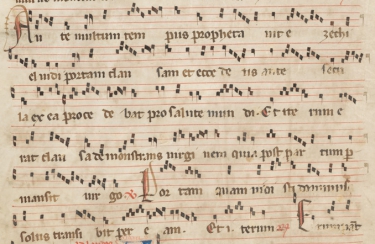 An te multum tem pus propheta vit e zechi
el vidi portam clau sam et ecce de us an te secu
la ex ea proce de bat pro salute mun di. Et ite rum e
rat clau sa demonstrans virgi nem quia post par tum p
mansit vir go
Por tam quam vidi sti dominus
solus transi bit per e am. Et i terum